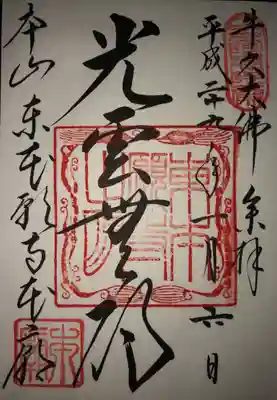 牛久大佛 参拝
平成二十九年十一月六日
光雲無碍
本山東本願寺本廟